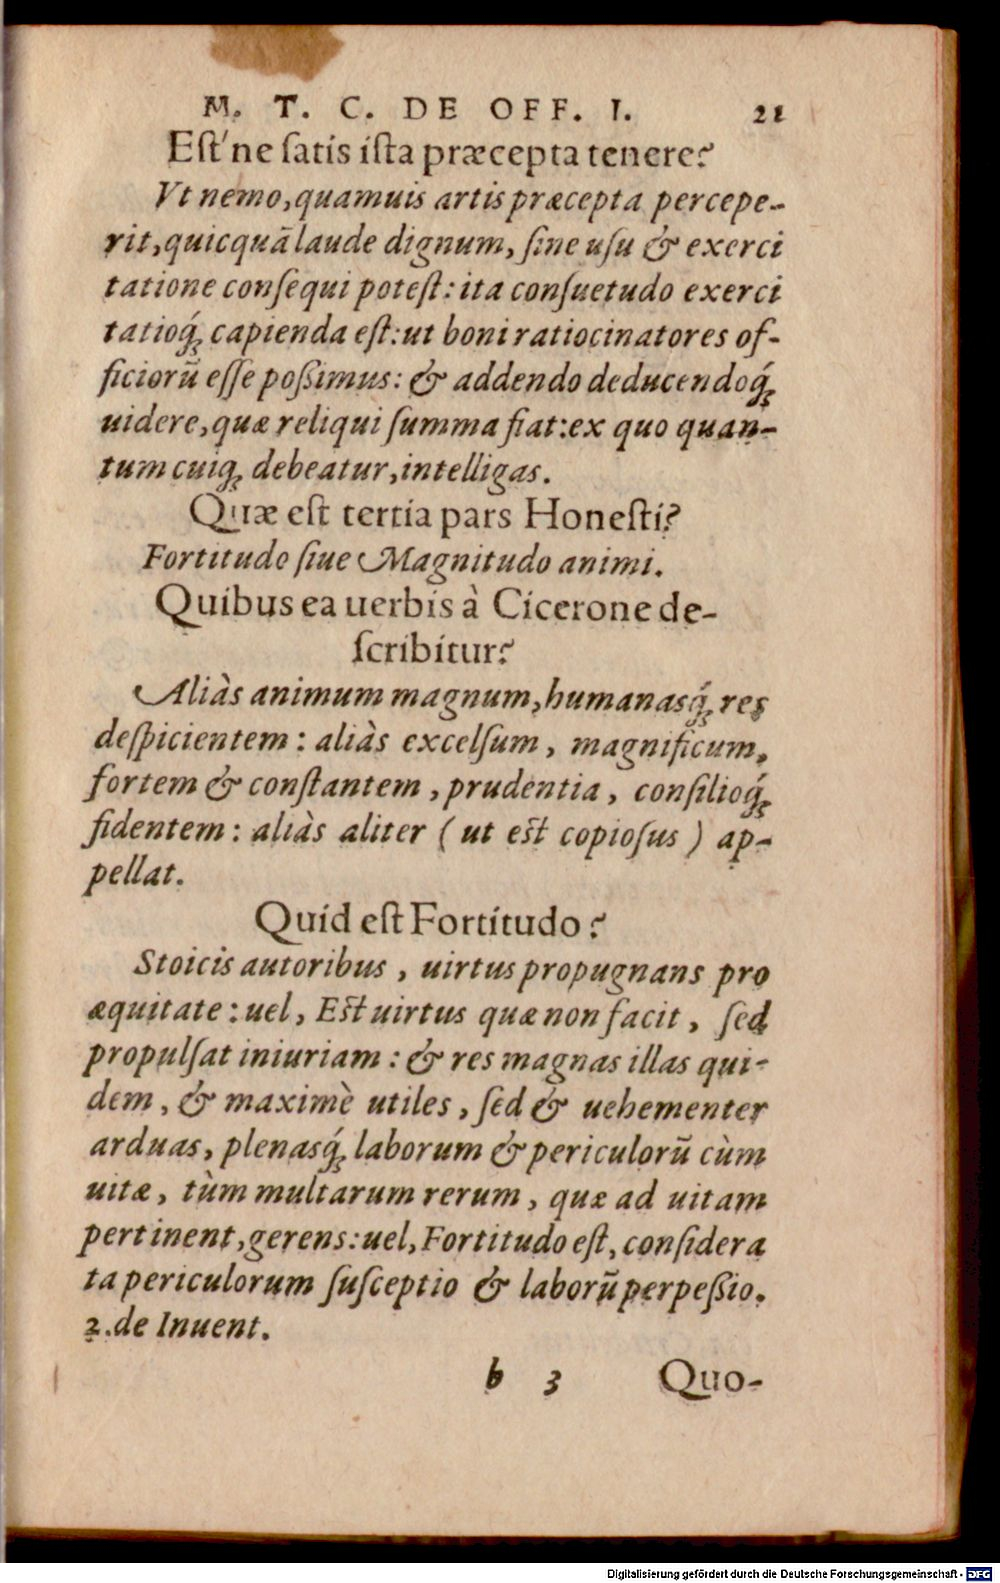 M. T. C. DE OFF. I. 21
Eſt'ne ſatis iſta præcepta tenere?
Vt nemo, quamuis artis præcepta percepe-
rit, quicquā laude dignum, ſine uſu & exerci
tatione conſequi poteſt: ita conſuetudo exerci
tatioq́; capienda eſt: ut boni ratiocinatores of-
ficiorū eſſe poßimus: & addendo deducendoq́;
uidere, quæ reliqui ſumma fiat: ex quo quan-
tum cuiq; debeatur, intelligas.
Quæ eſt tertia pars Honeſti?
Fortitudo ſiue Magnitudo animi.
Quibus ea uerbis à Cicerone de-
ſcribitur?
Aliàs animum magnum, humanasq́; res
deſpicientem: aliàs excelſum, magnificum,
fortem & conſtantem, prudentia, conſilioq́;
fidentem: aliàs aliter (ut eſt copioſus) ap-
pellat.
Quid eſt Fortitudo?
Stoicis autoribus, uirtus propugnans pro
æquitate: uel, Eſt uirtus quæ non facit, ſed
propulſat iniuriam: & res magnas illas qui-
dem, & maximè utiles, ſed & uehementer
arduas, plenasq́; laborum & periculorū cùm
uitæ, tùm multarum rerum, quæ ad uitam
pertinent, gerens: uel, Fortitudo eſt, conſidera
ta periculorum ſuſceptio & laborū perpeßio.
2. de Inuent.
b 3 Quo-
Digitalisierung gefördert durch die Deutsche Forschungsgemeinschaft - DFG